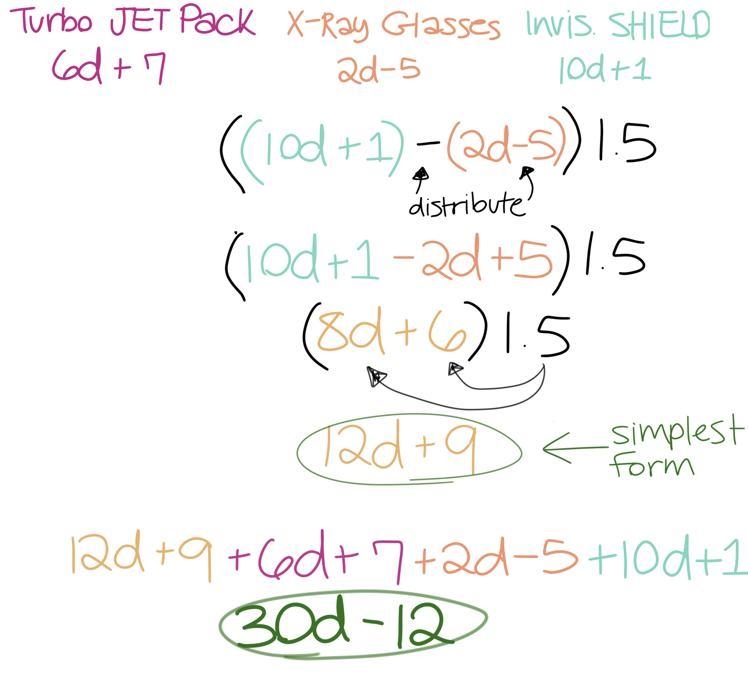 Turbo JET Pack X-Ray Glasses Invis. SHIELD
6d + 7 2d-5 10d+1
((10d + 1) - (2d-5)) 1.5
distribute
(10d+1 - 2d+5) 1.5
(8d+6) 1.5
12d+9 ← simplest
form
12d+9 +6d+7 +2d-5 +10d+1
30d-12